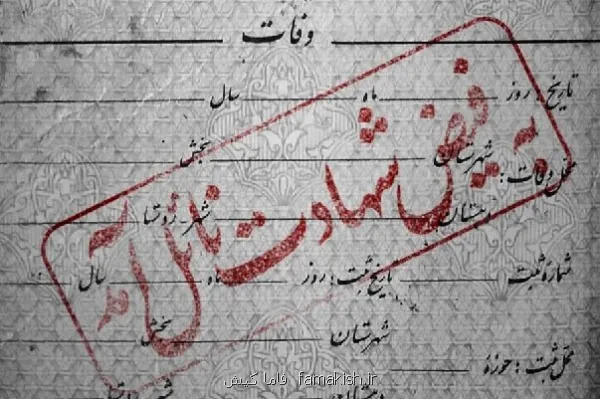 وفات
تاریخ: روز ماه سال
محل وفات: شهرستان بخش
دهستان شهر روستا
شماره ثبت تاریخ ثبت: روز ماه سال
محل ثبت: حوزه شهرستان بخش
دهستان شهر روستا
به فیض شهادت نائل آمد
فاما کیش famakish.ir